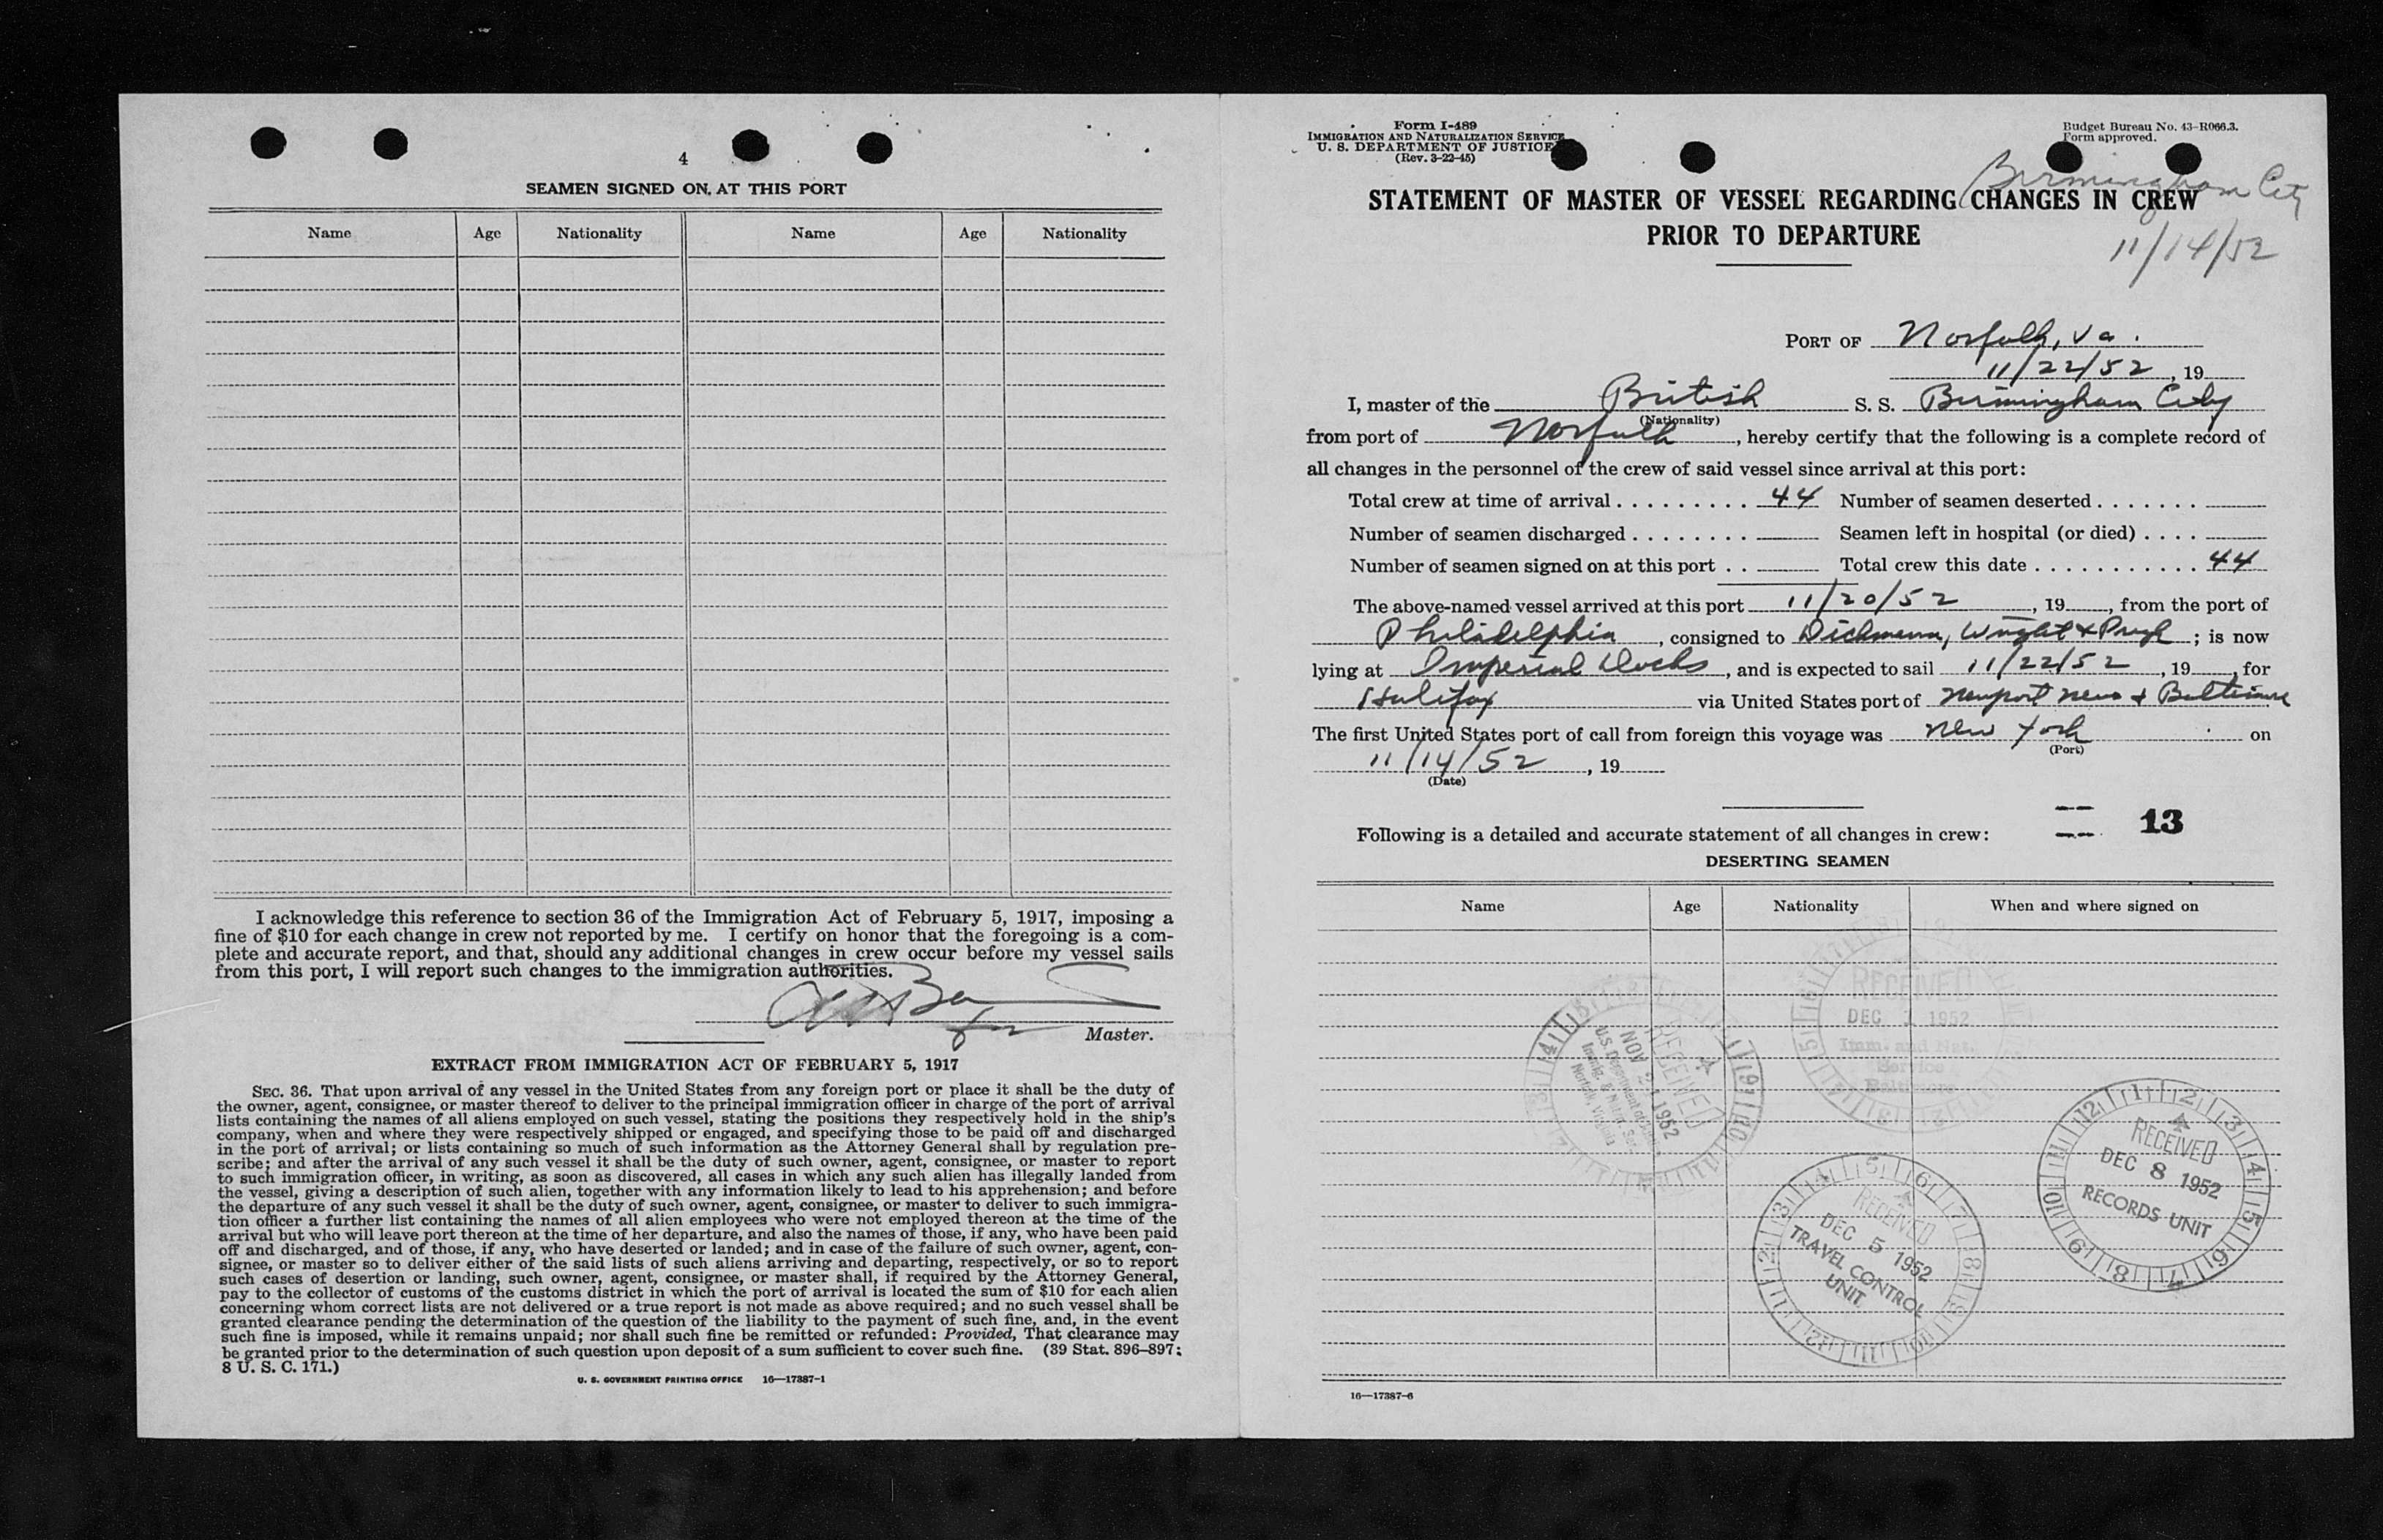 4
SEAMEN SIGNED ON AT THIS PORT
Name Age Nationality Name Age Nationality
I acknowledge this reference to section 36 of the Immigration Act of February 5, 1917, imposing a
fine of $10 for each change in crew not reported by me. I certify on honor that the foregoing is a com-
plete and accurate report, and that, should any additional changes in crew occur before my vessel sails
from this port, I will report such changes to the immigration authorities.
Master.
EXTRACT FROM IMMIGRATION ACT OF FEBRUARY 5, 1917
SEC. 36. That upon arrival of any vessel in the United States from any foreign port or place it shall be the duty of
the owner, agent, consignee, or master thereof to deliver to the principal immigration officer in charge of the port of arrival
lists containing the names of all aliens employed on such vessel, stating the positions they respectively hold in the ship's
company, when and where they were respectively shipped or engaged, and specifying those to be paid off and discharged
in the port of arrival; or lists containing so much of such information as the Attorney General shall by regulation pre-
scribe; and after the arrival of any such vessel it shall be the duty of such owner, agent, consignee, or master to report
to such immigration officer, in writing, as soon as discovered, all cases in which any such alien has illegally landed from
the vessel, giving a description of such alien, together with any information likely to lead to his apprehension; and before
the departure of any such vessel it shall be the duty of such owner, agent, consignee, or master to deliver to such immigra-
tion officer a further list containing the names of all alien employees who were not employed thereon at the time of the
arrival but who will leave port thereon at the time of her departure, and also the names of those, if any, who have been paid
off and discharged, and of those, if any, who have deserted or landed; and in case of the failure of such owner, agent, con-
signee, or master so to deliver either of the said lists of such aliens arriving and departing, respectively, or so to report
such cases of desertion or landing, such owner, agent, consignee, or master shall, if required by the Attorney General,
pay to the collector of customs of the customs district in which the port of arrival is located the sum of $10 for each alien
concerning whom correct lists are not delivered or a true report is not made as above required; and no such vessel shall be
granted clearance pending the determination of the question of the liability to the payment of such fine, and, in the event
such fine is imposed, while it remains unpaid; nor shall such fine be remitted or refunded: Provided, That clearance may
be granted prior to the determination of such question upon deposit of a sum sufficient to cover such fine. (39 Stat. 896-897;
8 U. S. C. 171.)
U. S. GOVERNMENT PRINTING OFFICE 16—17387-1
Form I-489
IMMIGRATION AND NATURALIZATION SERVICE
U. S. DEPARTMENT OF JUSTICE
(Rev. 3-22-45)
Budget Bureau No. 43-R066.3.
Form approved.
Birmingham City
11/14/52
STATEMENT OF MASTER OF VESSEL REGARDING CHANGES IN CREW
PRIOR TO DEPARTURE
PORT OF Norfolk, Va.
11/22/52, 19
I, master of the British S. S. Birmingham City
(Nationality)
from port of Norfolk, hereby certify that the following is a complete record of
all changes in the personnel of the crew of said vessel since arrival at this port:
Total crew at time of arrival 44 Number of seamen deserted
Number of seamen discharged Seamen left in hospital (or died)
Number of seamen signed on at this port Total crew this date 44
The above-named vessel arrived at this port 11/20/52, 19, from the port of
Philadelphia, consigned to Dichmann, Wright & Pugh; is now
lying at Imperial Docks, and is expected to sail 11/22/52, 19, for
Halifax via United States port of Newport News & Baltimore
The first United States port of call from foreign this voyage was New York on
(Port)
11/14/52, 19
(Date)
13
Following is a detailed and accurate statement of all changes in crew:
DESERTING SEAMEN
Name Age Nationality When and where signed on
RECEIVED
DEC 1952
Imm. and Nat.
Service
Baltimore
RECEIVED
NOV 1952
U.S. Department of Justice
Immig. & Natur. Ser.
Norfolk, Virginia
RECEIVED
DEC 5 1952
TRAVEL CONTROL
UNIT
RECEIVED
DEC 8 1952
RECORDS UNIT
16—17387-6